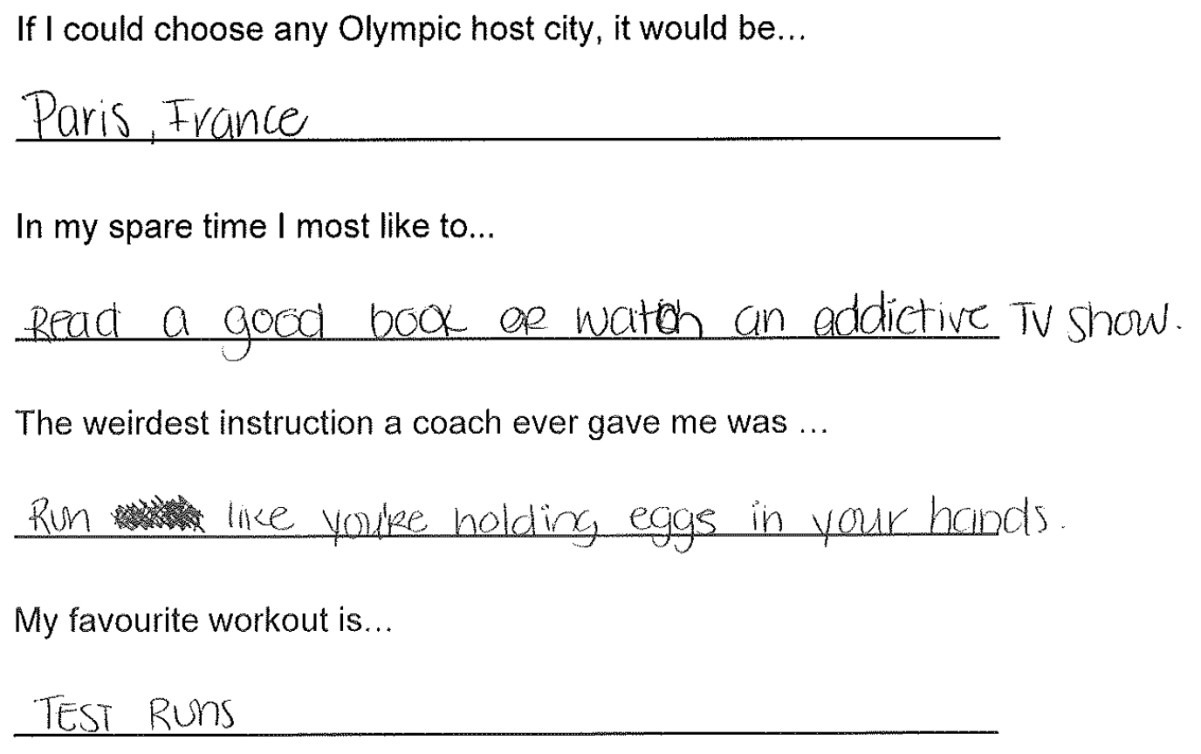 If I could choose any Olympic host city, it would be...
Paris, France
In my spare time I most like to...
Read a good book or watch an addictive TV show.
The weirdest instruction a coach ever gave me was ...
Run like you're holding eggs in your hands.
My favourite workout is...
TEST RUNS